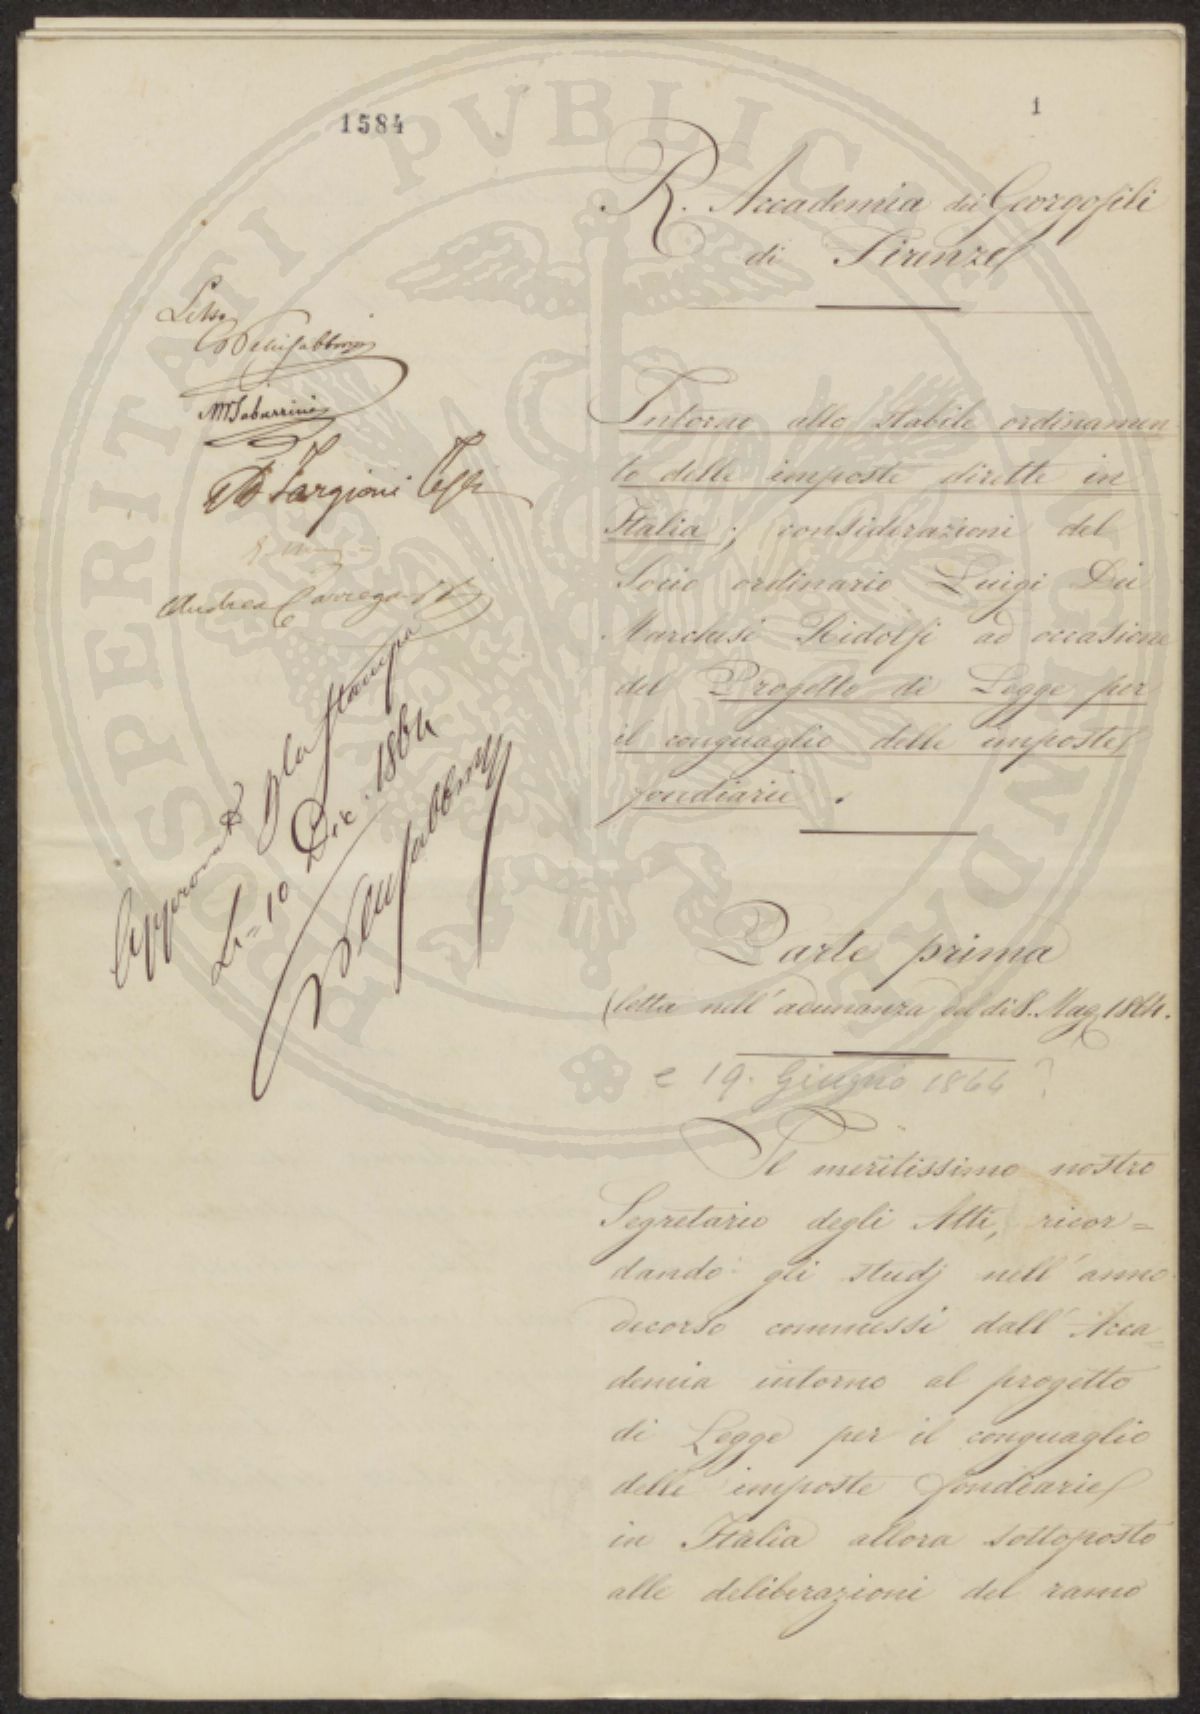 1584
1
PROSPERITATI PVBLICAE
R. Accademia dei Georgofili
di Firenze
Letto
M Tabarrini
A Targioni Tozzi
Andrea Carrega
Approvato p la stampa
Li = 10 Dic. 1864
Intorno allo stabile ordinamen
to delle imposte dirette in
Italia; considerazioni del
Socio ordinario Luigi Dei
Marchesi Ridolfi ad occasione
del Progetto di Legge per
il conguaglio delle imposte
fondiarie.
Parte prima
(letta nell'adunanza del dì 8. Mag. 1864.
e 19. Giugno 1864?
Il meritissimo nostro
Segretario degli Atti, ricor=
dando gli studj nell'anno
decorso commessi dall'Acca=
demia intorno al progetto
di Legge per il conguaglio
delle imposte fondiarie
in Italia allora sottoposto
alle deliberazioni del ramo